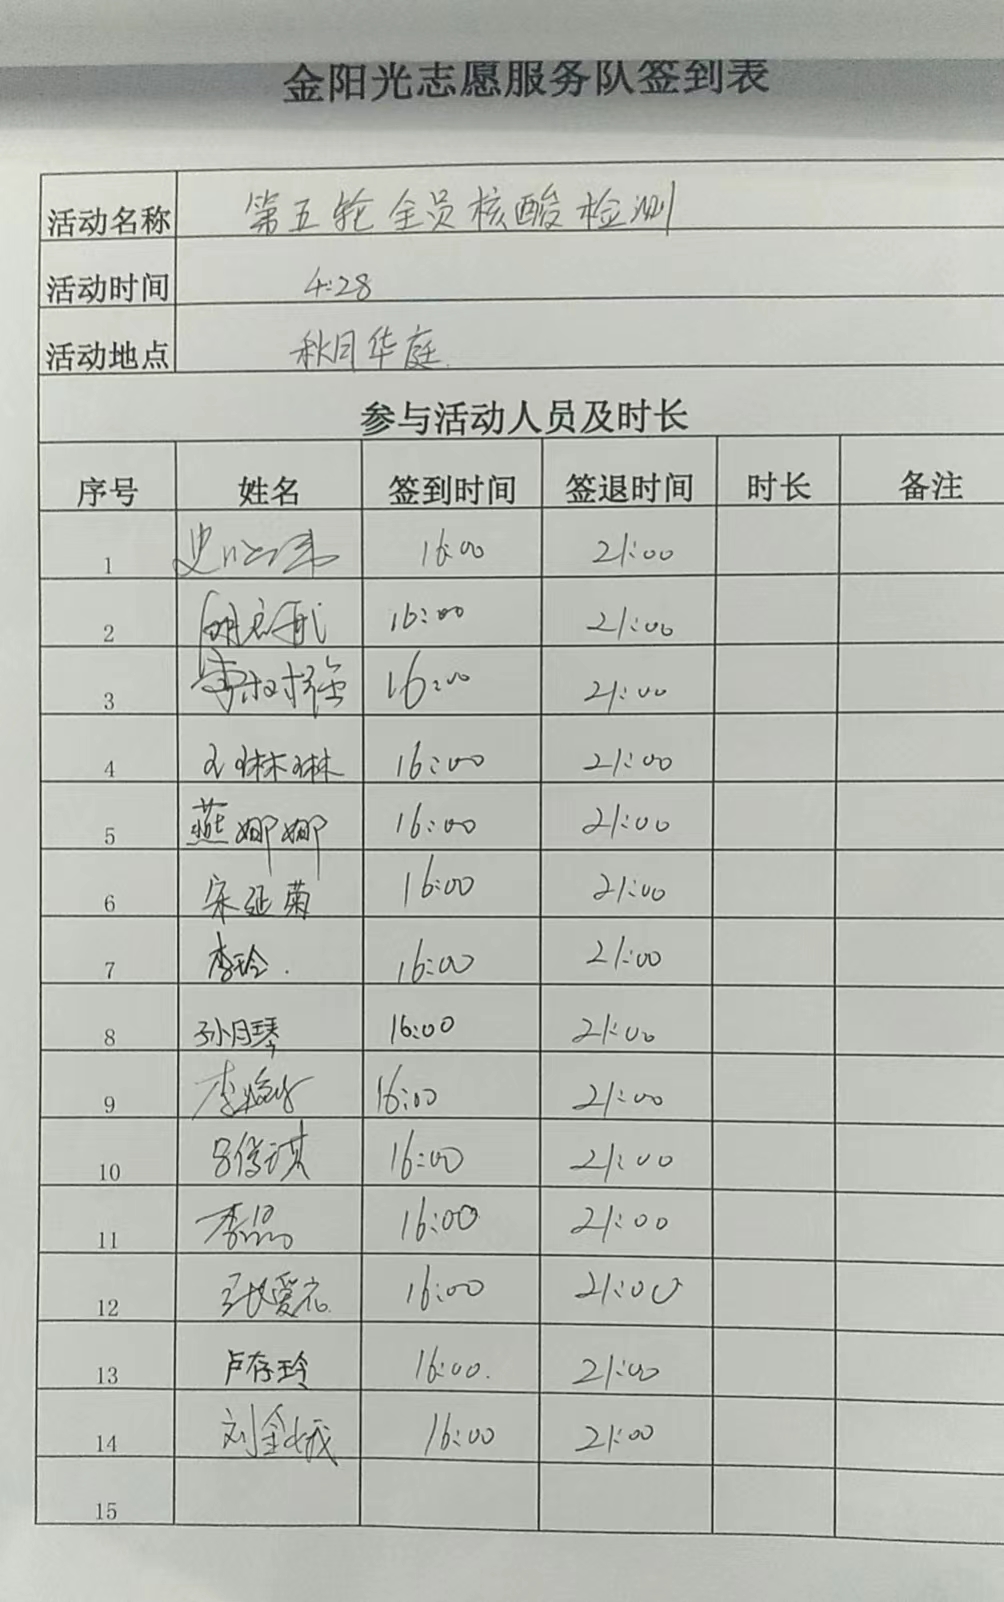 金阳光志愿服务队签到表
活动名称 第五轮全员核酸检测
活动时间 4:28
活动地点 秋月华庭
参与活动人员及时长
序号 姓名 签到时间 签退时间 时长 备注
1 16:00 21:00
2 16:00 21:00
3 16:00 21:00
4 王琳琳 16:00 21:00
5 燕娜娜 16:00 21:00
6 宋延菊 16:00 21:00
7 李玲. 16:00 21:00
8 孙月琴 16:00 21:00
9 李 16:00 21:00
10 吕传琪 16:00 21:00
11 李晶 16:00 21:00
12 张爱 16:00 21:00
13 卢存玲 16:00. 21:00
14 刘金娥 16:00 21:00
15